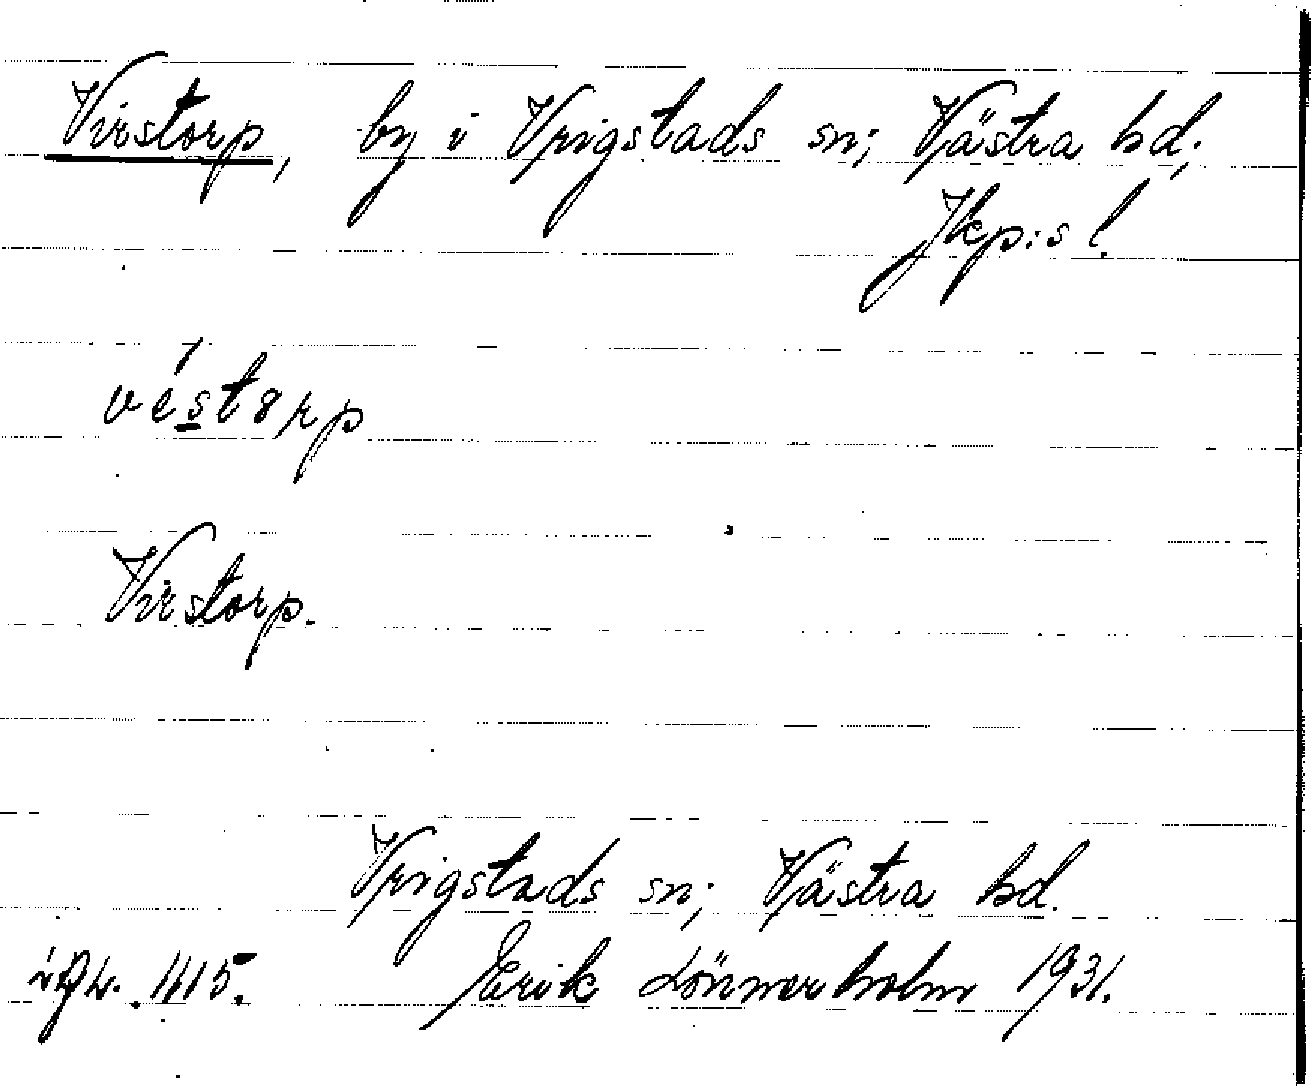 Virstorp, by i Vrigstads sn; Västra hd;
Jkp:s l.
Virstorp.
Vrigstads sn; Västra hd.
Erik Lönnerholm 1931.